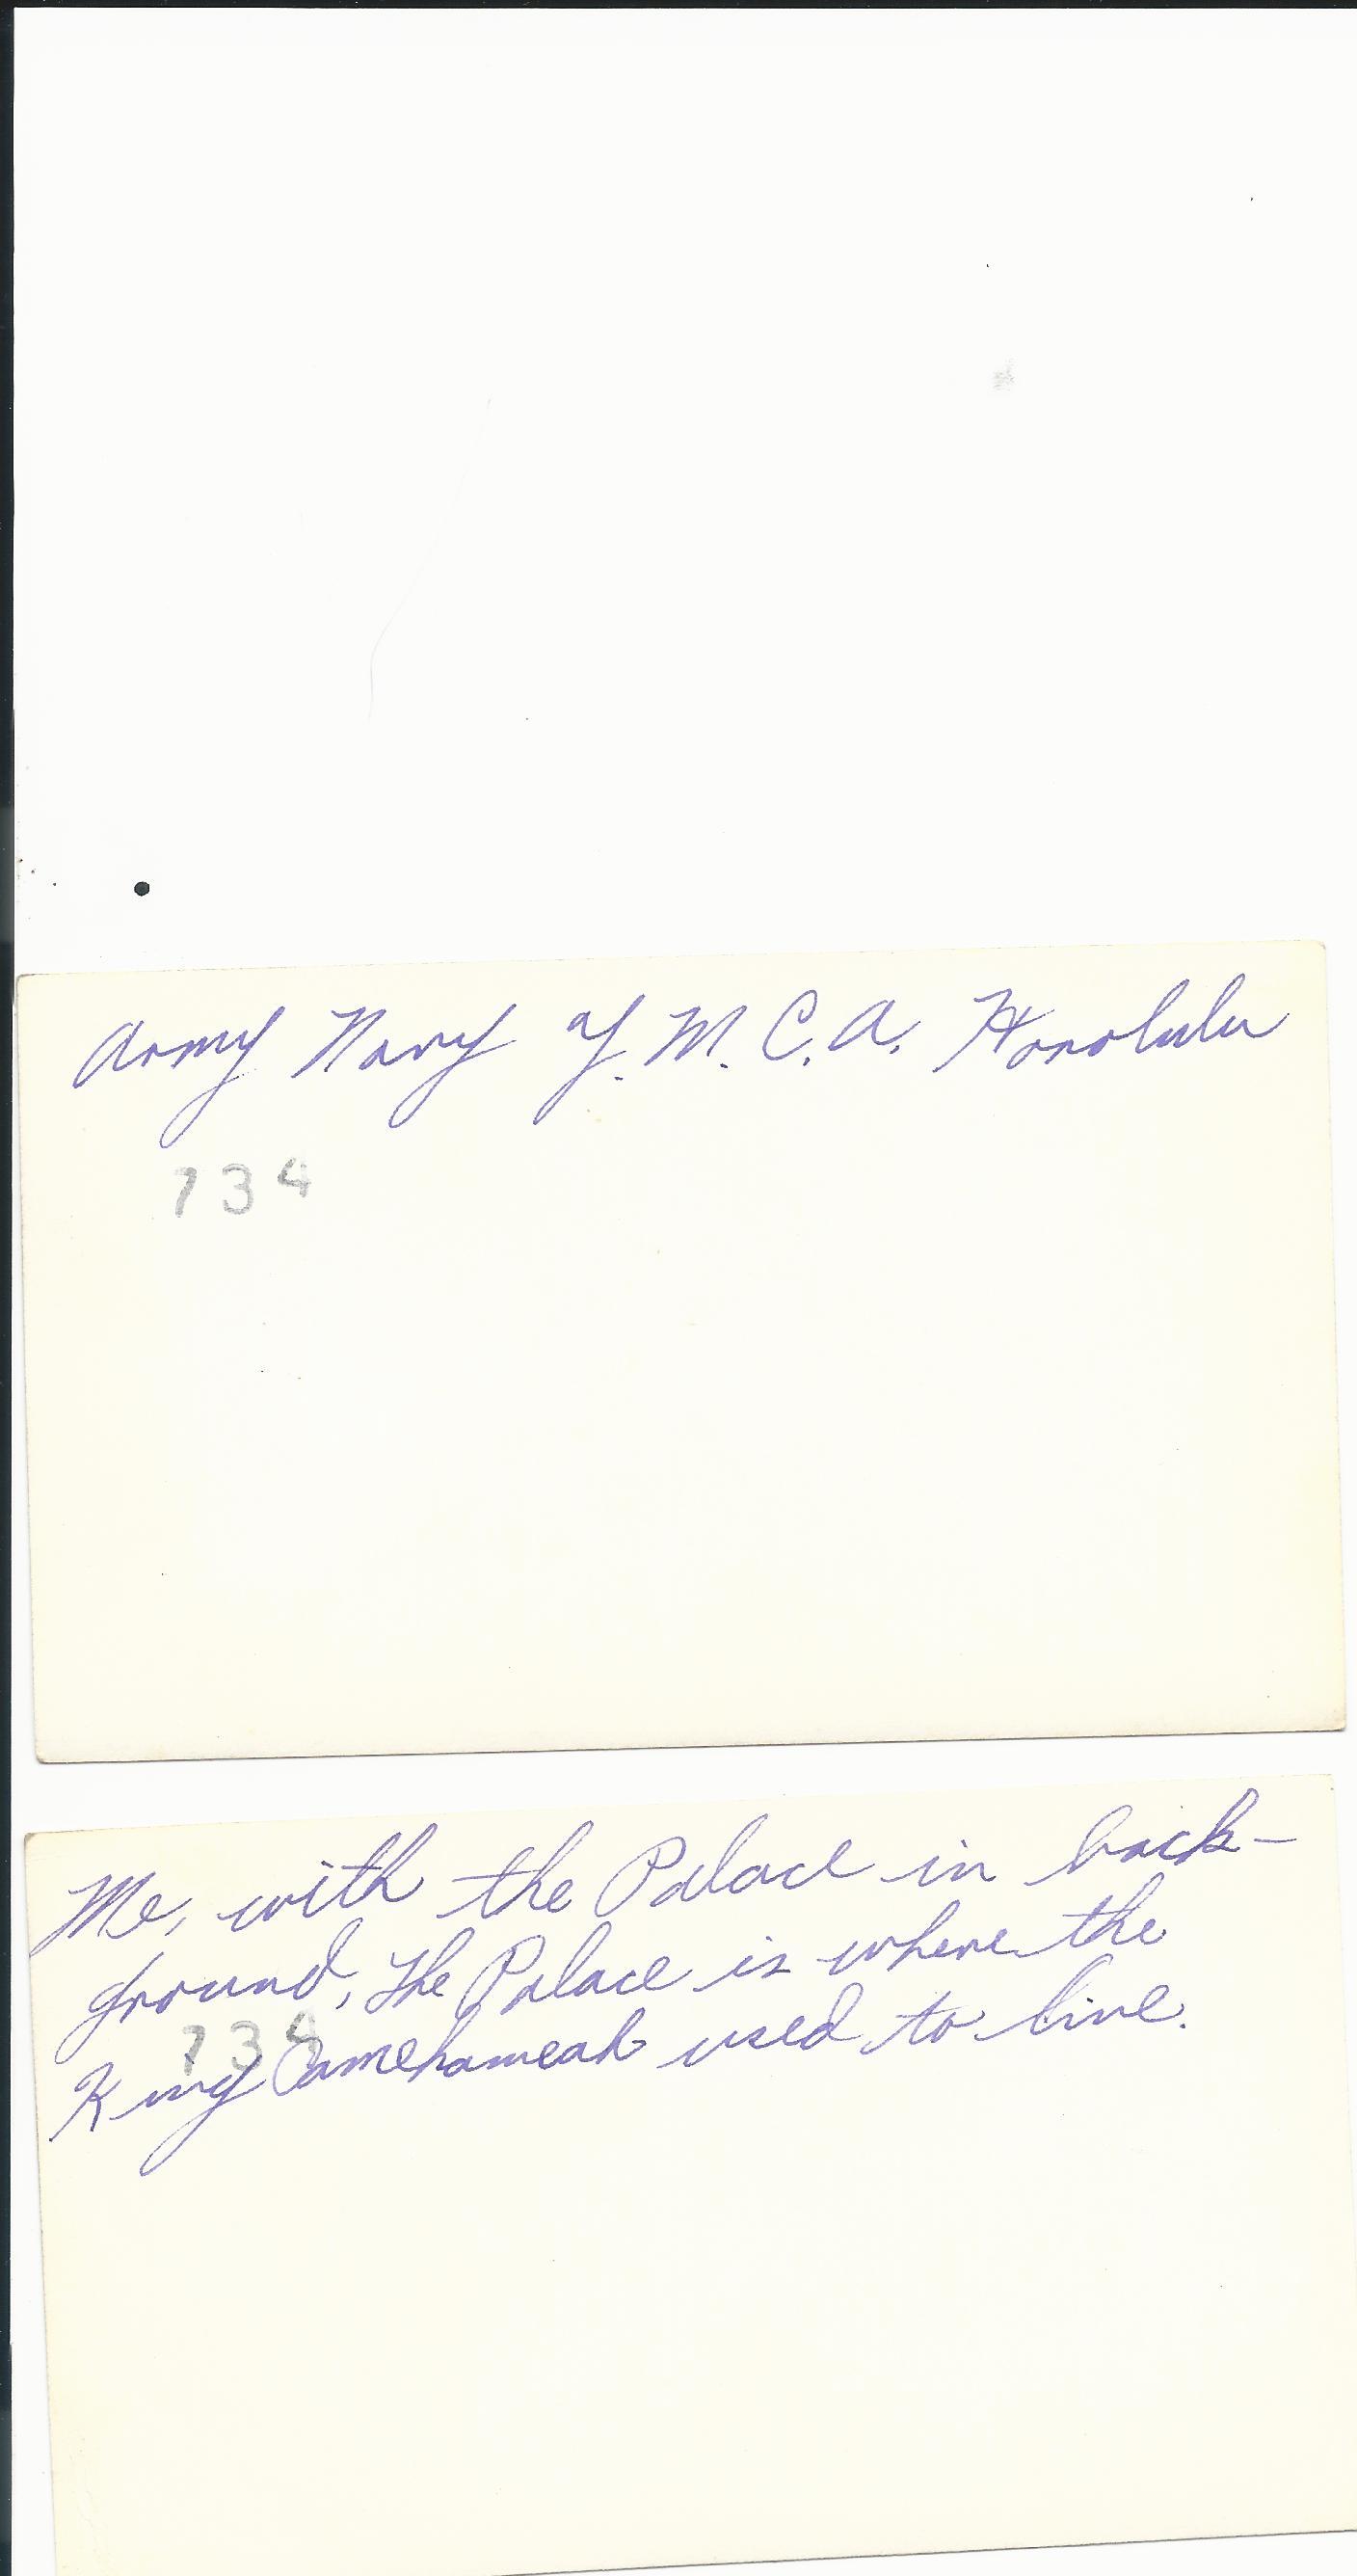 Army Navy Y.M.C.A. Honolulu
734
Me, with the Palace in back-
ground, The Palace is where the
734
King Camehameah used to live.